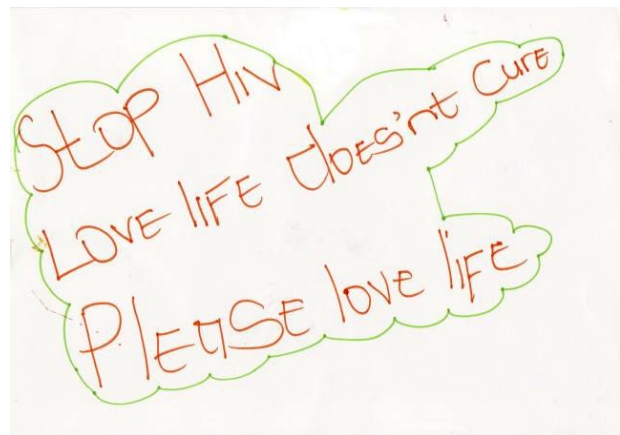 Stop HIV
Love life does'nt cure
Please love life